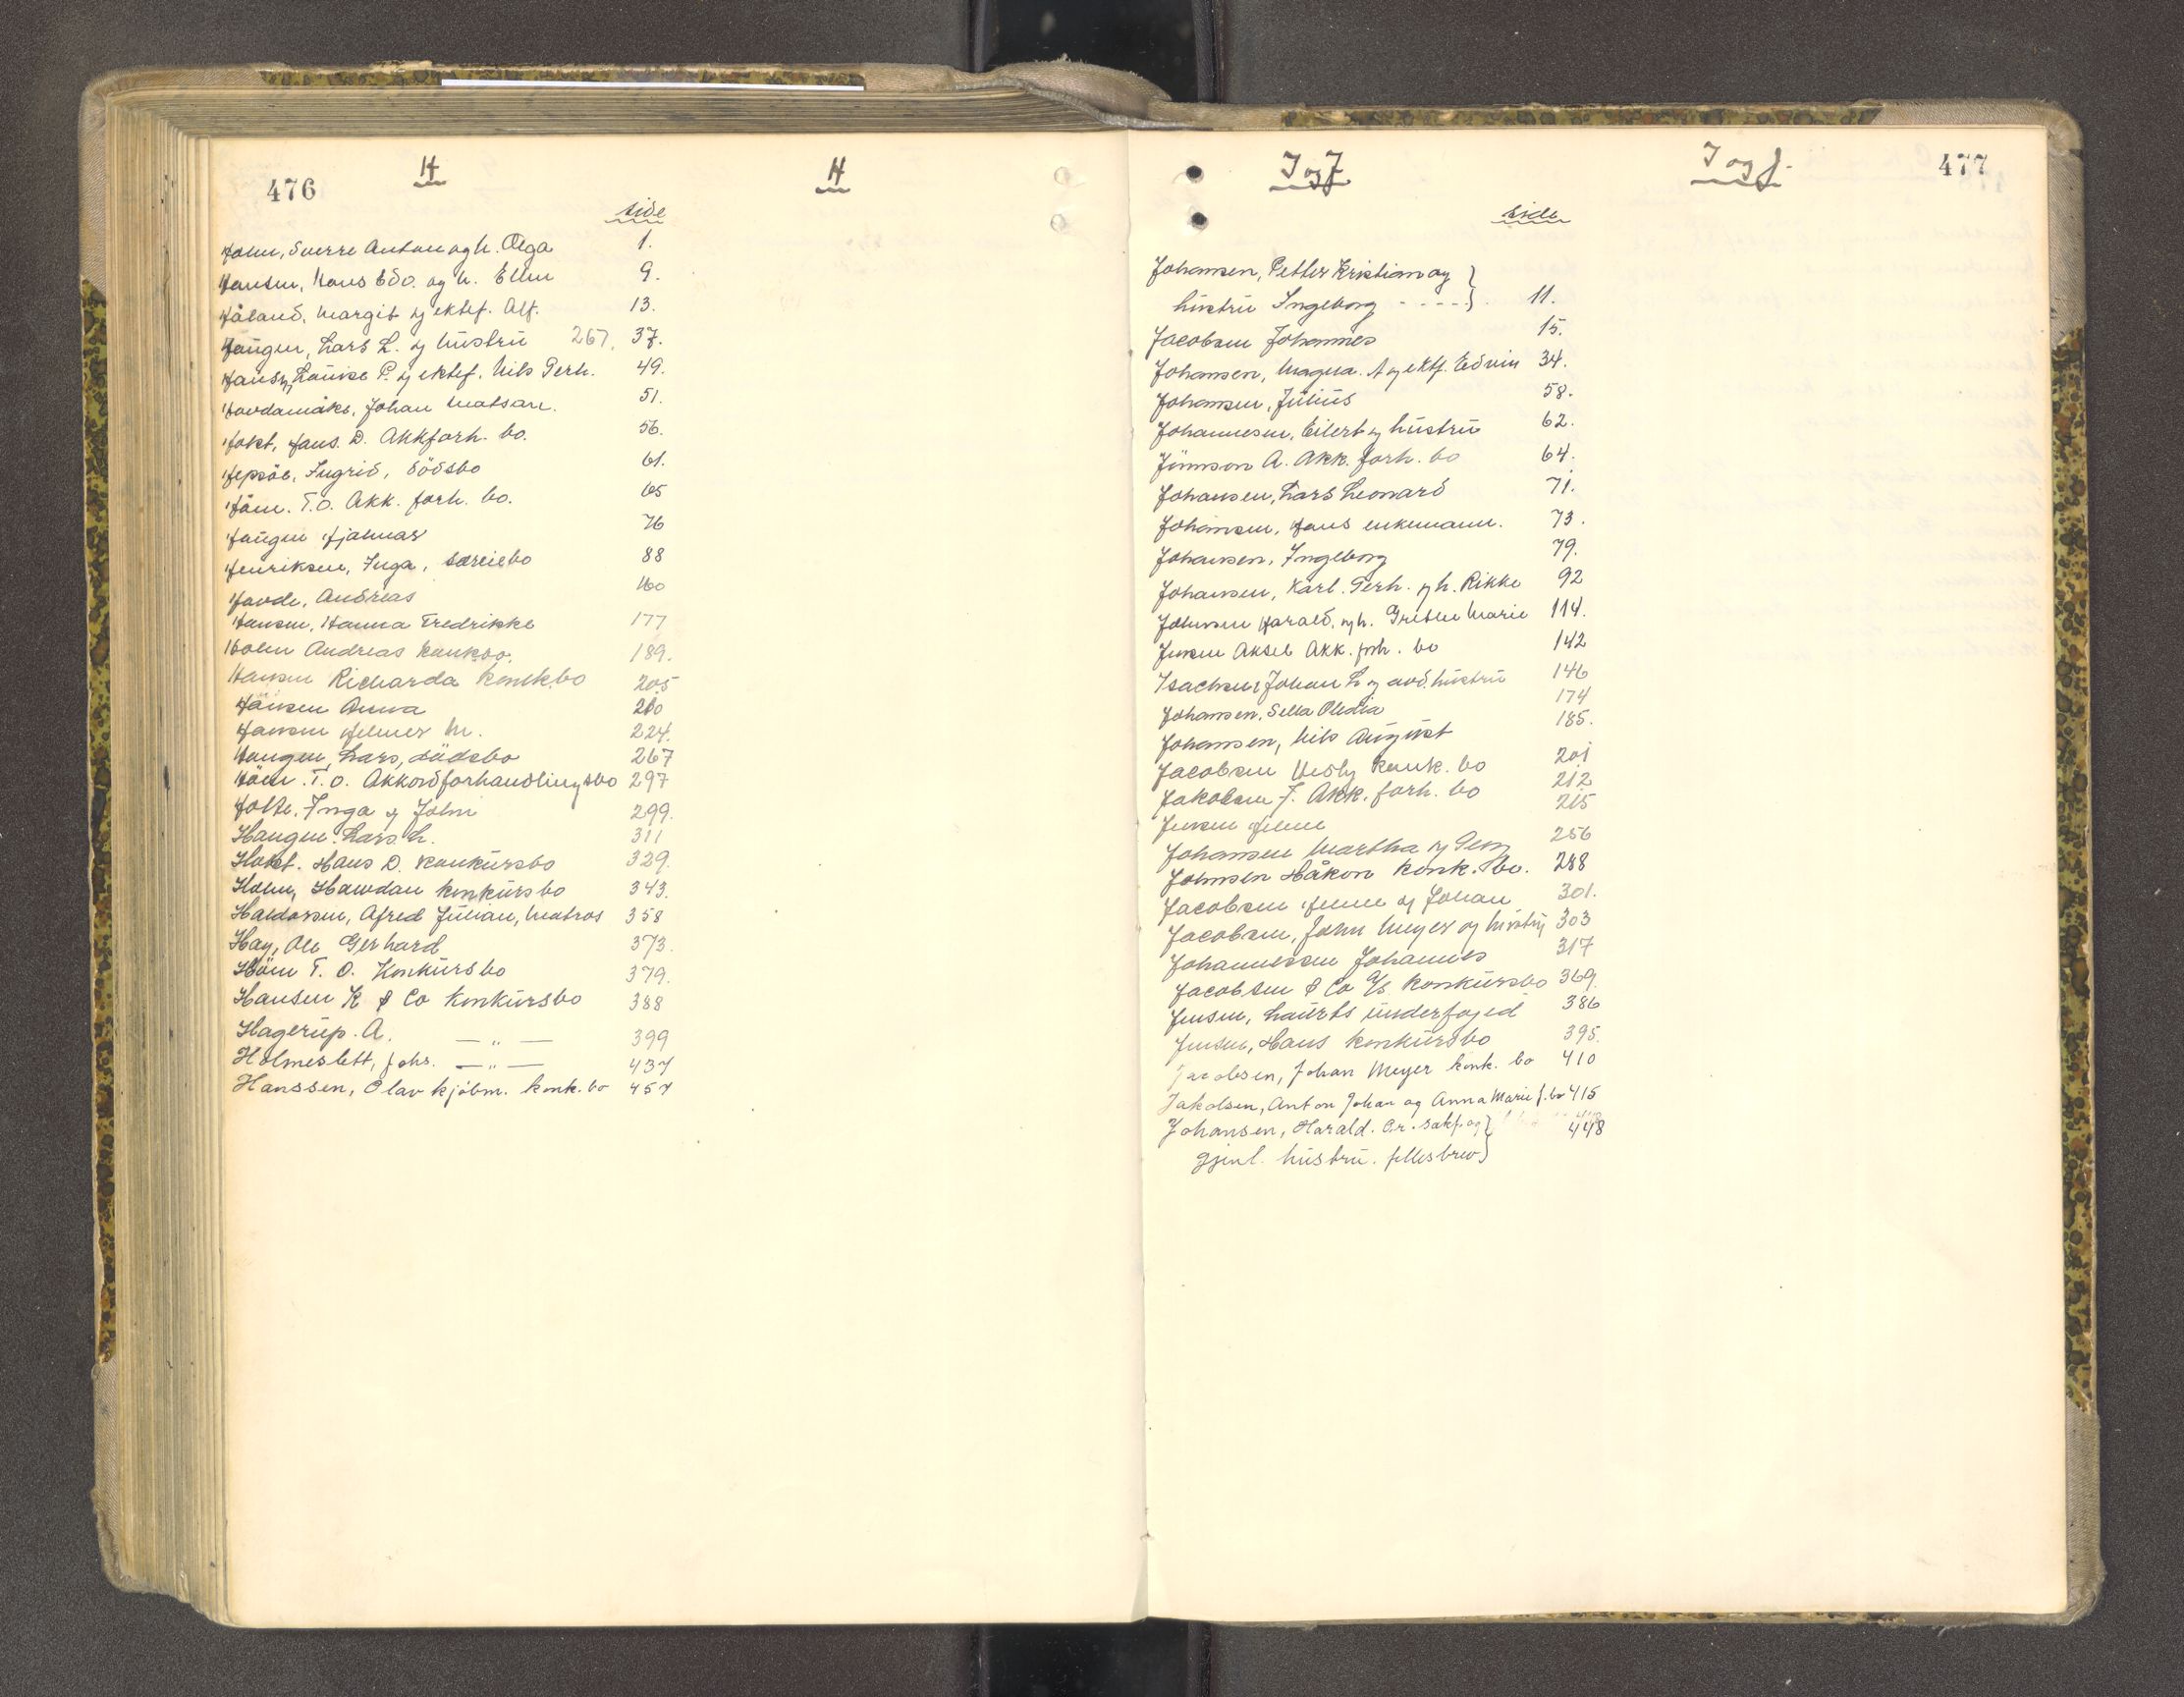 476
H
H
side
Holm, Sverre Anton og h. Olga 1.
Hansen, Hans Edv. og h. Ellen 9.
Håland, Margit og ektef. Alf. 13.
Haugen, Lars L. og hustru 267, 37.
Hansen, Louise P. og ektef. Nils Perh. 49.
Johan Matsen. 51.
Hokt, Hans. D. Akkforh. bo. 56.
Hepsöe, Ingrid, dödsbo 61.
Höm. T.O. Akk. forh. bo. 65
Haugen Hjalmar 76
Henriksen, Inga, særeiebo 88
Havde, Andreas 160
Hansen, Hanna Fredrikke 177
Holm Andreas konkbo. 189.
Hansen Richarda Konkbo 205
Hansen Anna 210
Hansen Helmer M. 224.
Haugen, Lars, dödsbo 267
Höm. T.O. Akkordforhandlingsbo 297
Holte. Inga og John 299.
Haugen. Lars L. 311
Hokt. Hans D. konkursbo 329.
Holm, Hawdan konkursbo 343.
Haldorsen, Afred Julian, Matros 358
Hay, Ole Gerhard 373.
Höm T. O. Konkursbo 379.
Hansen K & Co konkursbo 388
Hagerup. A. — " — 399
Holmeslett, Johs. — " — 437
Hanssen, Olav kjöbm. konk. bo 457
477
I og J
I og J.
side
Johansen, Petter Kristian og }
hustru Ingeborg - - - - } 11.
Jacobsen Johannes 15.
Johansen, Magna. A og ektf. Edvin 34.
Johansen, Julius 58.
Johannesen, Eilert og hustru 62.
Jünson A. Akk. forh. bo 64.
Johansen, Lars Leonard 71.
Johansen, Hans enkemann. 73.
Johansen, Ingeborg 79.
Johansen, Karl. Perh. og h. Rikke 92
Johnsen Harald, og h. Grethe Marie 114.
Jensen Aksel Akk. forh. bo 142
Isachsen, Johan L og avd. hustru 146
Johansen, Sella Oledia 174
Johansen, Nils August 185.
Jacobsen Hedly konk. bo 201
Jakobsen J. Akk. forh. bo 212
Jensen Helene 215
Johansen Martha og Peny 256
Johnsen Håkon konk. bo. 288
Jacobsen Helene og Johan 301.
Jacobsen, John Meyer og hustru 303
Johannessen Johannes 317
Jacobsen & Co A/s konkursbo 369.
Jensen, Laurits underfogd 386
Jensen, Hans konkursbo 395.
Jacobsen, Johan Meyer konk. bo 410
Jakobsen, Anton Johan og Anna Marie f. bo 415
Johansen, Harald. O.r. sakf. og } 448
gjenl. hustru. fellesbrev }